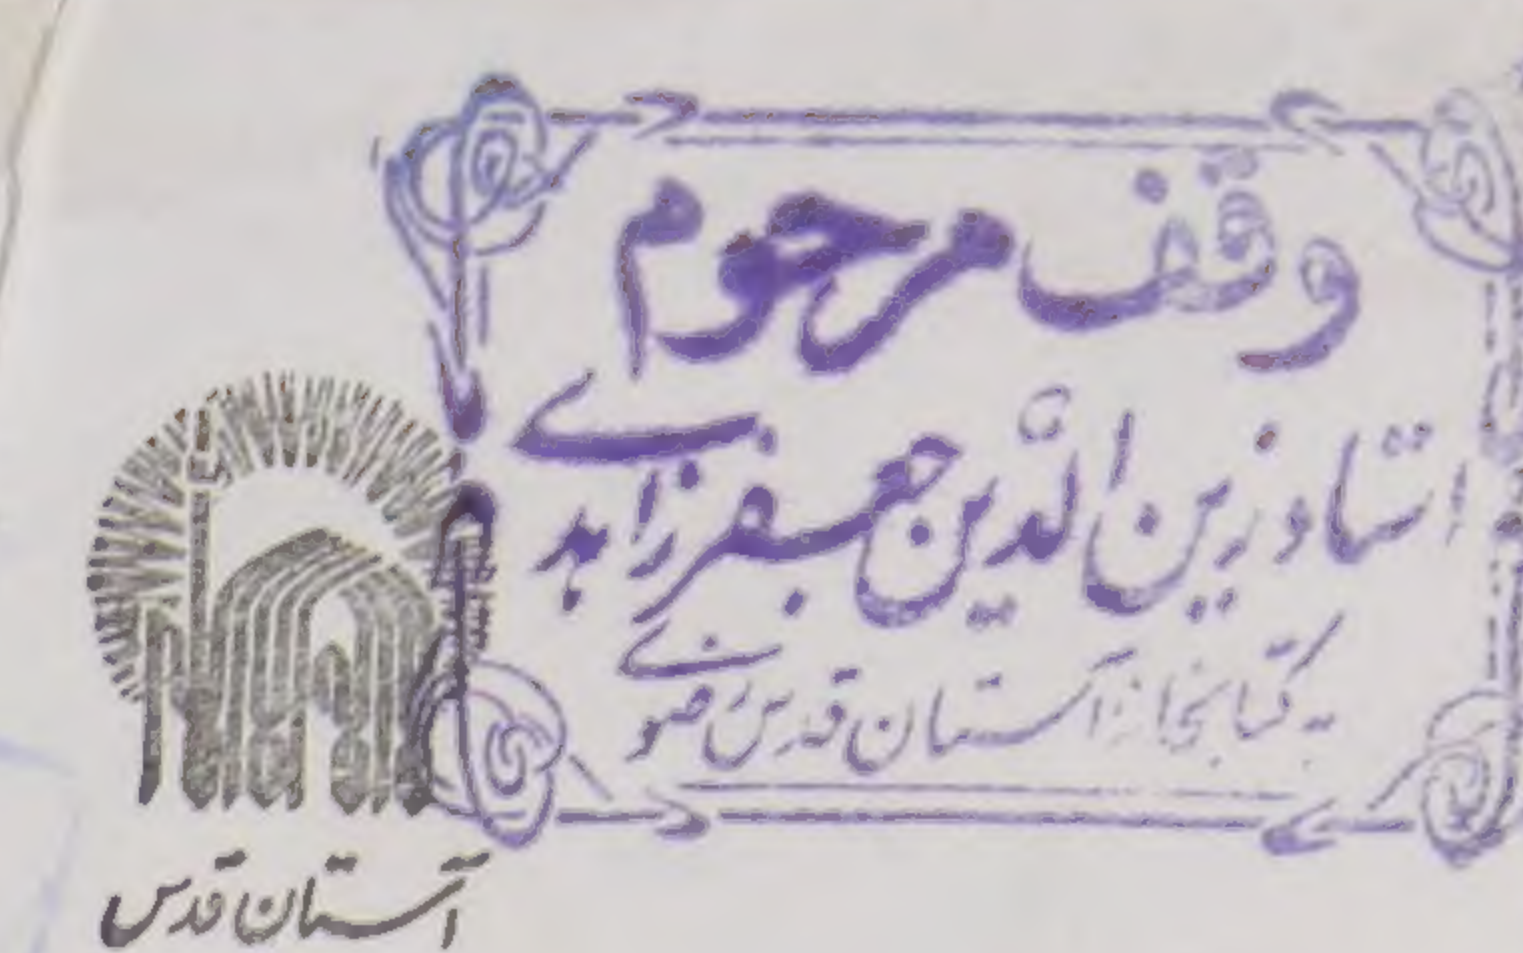 وقف مرحوم
استاد زین الدّین جعفر زاهدی
به کتابخانه آستان قدس رضوی
آستان قدس